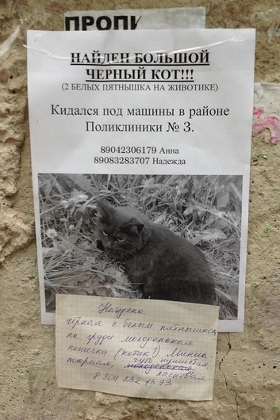 ПРОПА
НАЙДЕН БОЛЬШОЙ
ЧЕРНЫЙ КОТ!!!
(2 БЕЛЫХ ПЯТНЫШКА НА ЖИВОТИКЕ)
Кидался под машины в районе
Поликлиники № 3.
89042306179 Анна
89083283707 Надежда
Найдена
чёрная с белым пятнышком
на груди молоденькая
кошечка (котик?)
чуть пушистая
ласковая